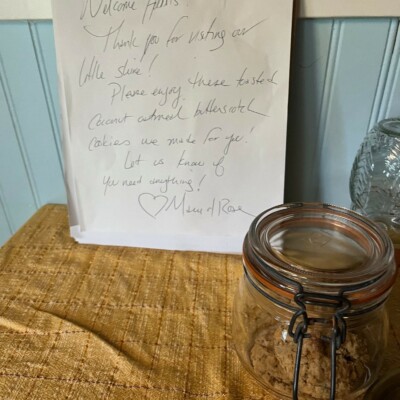 Welcome
Thank you for visiting our
little
Please enjoy these toasted
coconut oatmeal butterscotch
cookies we made for you!
Let us know if
you need anything!